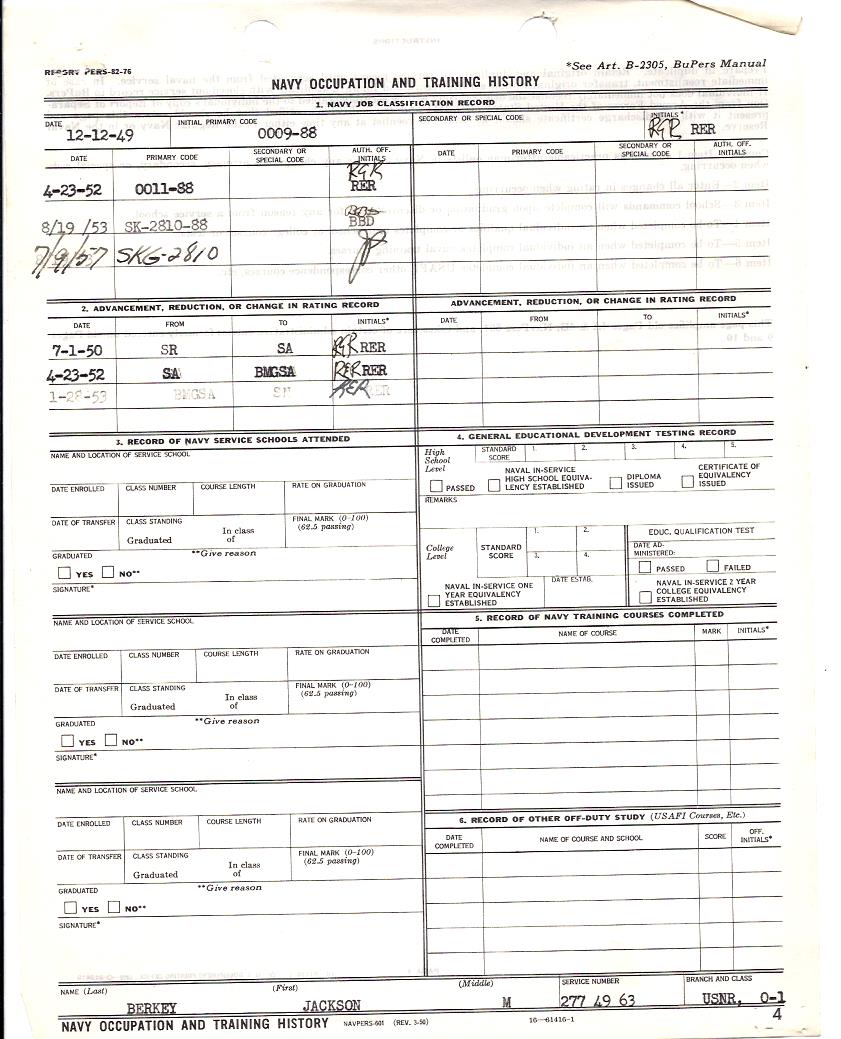 *See Art. B-2305, BuPers Manual
REPORT PERS-82-76
NAVY OCCUPATION AND TRAINING HISTORY
1. NAVY JOB CLASSIFICATION RECORD
DATE 12-12-49 INITIAL PRIMARY CODE 0009-88 SECONDARY OR SPECIAL CODE INITIALS* RER RER
DATE PRIMARY CODE SECONDARY OR SPECIAL CODE AUTH. OFF. INITIALS DATE PRIMARY CODE SECONDARY OR SPECIAL CODE AUTH. OFF. INITIALS
4-23-52 0011-88 RER RER
8/19/53 SK-2810-88 BBD BBD
7/9/57 SKG-2810
2. ADVANCEMENT, REDUCTION, OR CHANGE IN RATING RECORD ADVANCEMENT, REDUCTION, OR CHANGE IN RATING RECORD
DATE FROM TO INITIALS* DATE FROM TO INITIALS*
7-1-50 SR SA RER RER
4-23-52 SA BMGSA RER RER
1-28-53 BMGSA SN RER RER
3. RECORD OF NAVY SERVICE SCHOOLS ATTENDED
NAME AND LOCATION OF SERVICE SCHOOL
DATE ENROLLED CLASS NUMBER COURSE LENGTH RATE ON GRADUATION
DATE OF TRANSFER CLASS STANDING FINAL MARK (0-100)
(62.5 passing)
Graduated In class of
GRADUATED **Give reason
YES NO**
SIGNATURE*
NAME AND LOCATION OF SERVICE SCHOOL
DATE ENROLLED CLASS NUMBER COURSE LENGTH RATE ON GRADUATION
DATE OF TRANSFER CLASS STANDING FINAL MARK (0-100)
(62.5 passing)
Graduated In class of
GRADUATED **Give reason
YES NO**
SIGNATURE*
NAME AND LOCATION OF SERVICE SCHOOL
DATE ENROLLED CLASS NUMBER COURSE LENGTH RATE ON GRADUATION
DATE OF TRANSFER CLASS STANDING FINAL MARK (0-100)
(62.5 passing)
Graduated In class of
GRADUATED **Give reason
YES NO**
SIGNATURE*
4. GENERAL EDUCATIONAL DEVELOPMENT TESTING RECORD
High School Level STANDARD SCORE 1. 2. 3. 4. 5.
PASSED NAVAL IN-SERVICE HIGH SCHOOL EQUIVA-LENCY ESTABLISHED DIPLOMA ISSUED CERTIFICATE OF EQUIVALENCY ISSUED
REMARKS
College Level STANDARD SCORE 1. 2. 3. 4. EDUC. QUALIFICATION TEST
DATE AD-MINISTERED:
PASSED FAILED
NAVAL IN-SERVICE ONE YEAR EQUIVALENCY ESTABLISHED DATE ESTAB. NAVAL IN-SERVICE 2 YEAR COLLEGE EQUIVALENCY ESTABLISHED
5. RECORD OF NAVY TRAINING COURSES COMPLETED
DATE COMPLETED NAME OF COURSE MARK INITIALS*
6. RECORD OF OTHER OFF-DUTY STUDY (USAFI Courses, Etc.)
DATE COMPLETED NAME OF COURSE AND SCHOOL SCORE OFF. INITIALS*
NAME (Last) (First) (Middle) SERVICE NUMBER BRANCH AND CLASS
BERKEY JACKSON M 277 49 63 USNR, O-1
NAVY OCCUPATION AND TRAINING HISTORY NAVPERS-601 (REV. 3-50) 16-61416-1 4